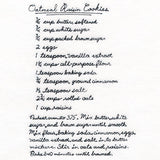 Oatmeal Raisin Cookies
¾ cup butter, softened
¾ cup white sugar
¾ cup packed brown sugar
2 eggs
1 teaspoon vanilla extract
1¼ cups all-purpose flour
1 teaspoon baking soda
¾ teaspoon ground cinnamon
½ teaspoon salt
2¾ cups rolled oats
1 cup raisins
Preheat oven to 375°. Mix butter, white
sugar, and brown sugar until smooth.
Mix flour, baking soda, cinnamon, eggs,
vanilla extract, and salt, in to butter
mixture. Stir in oats and raisins.
Bake minutes until browned.